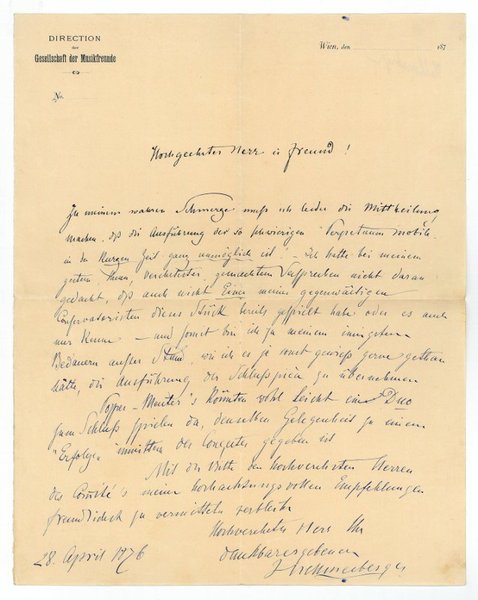 DIRECTION
der
Gesellschaft der Musikfreunde
No.
Wien, den 187
Hochgeehrter Herr u Freund!
Zu meinem wahren Schmerze muß ich leider die Mittheilung
machen, daß die Ausführung des so schwierigen "Perpetuum mobile"
in der kurzen Zeit ganz unmöglich ist – Ich hatte bei meinem
guten gemachten Versprechen nicht daran
gedacht, daß auch nicht Einer meiner gegenwärtigen
Conservatoristen dieses Stück bereits gespielt habe oder es auch
nur kenne – und somit bin ich zu meinem innigsten
Bedauern außer Stand, wie ich es ja sonst gewiß gerne gethan
hätte, die Ausführung der Schlußpièce zu übernehmen
Popper-Menter's könnten wohl leicht ein Duo
zum Schluß spielen da, denselben Gelegenheit zu einem
"Erfolge" inmitten des gegeben ist
Mit der Bitte den hochverehrten Herren
des Comité's meine hochachtungsvollen Empfehlungen
freundlichst zu vermitteln verbleibe
Hochverehrter Herr Ihr
dankbarergebener
J Hellmesberger
28. April 1876